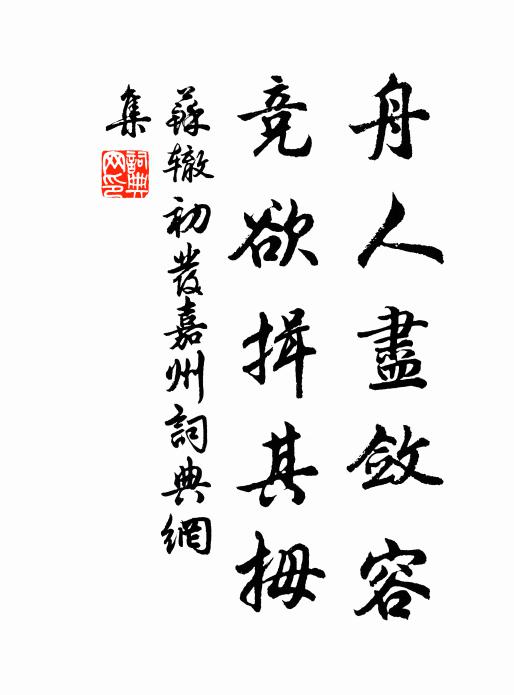 舟人盡斂容
競欲揖其拇
蘇轍初發嘉州詞典網
集
詞典
网印